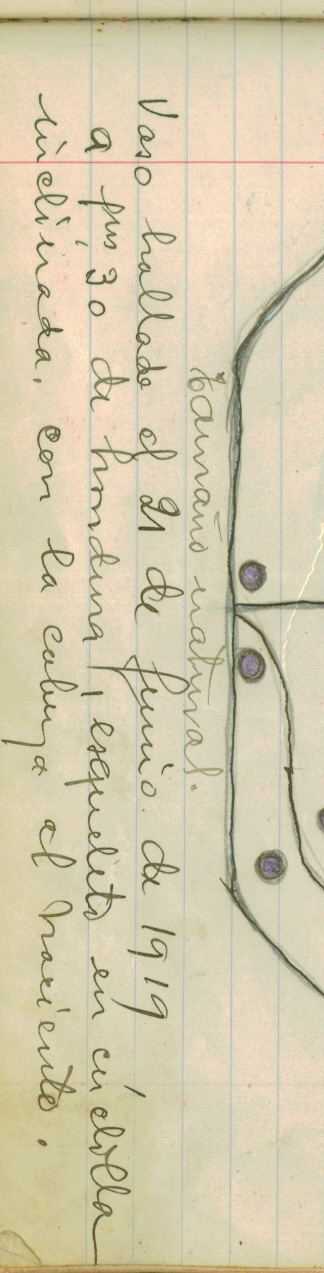 tamaño natural.
Vaso hallado el 21 de junio. de 1919
a 30 de hondura, esqueleto en cúclilla
inclinada, con la cabeza al naciente.